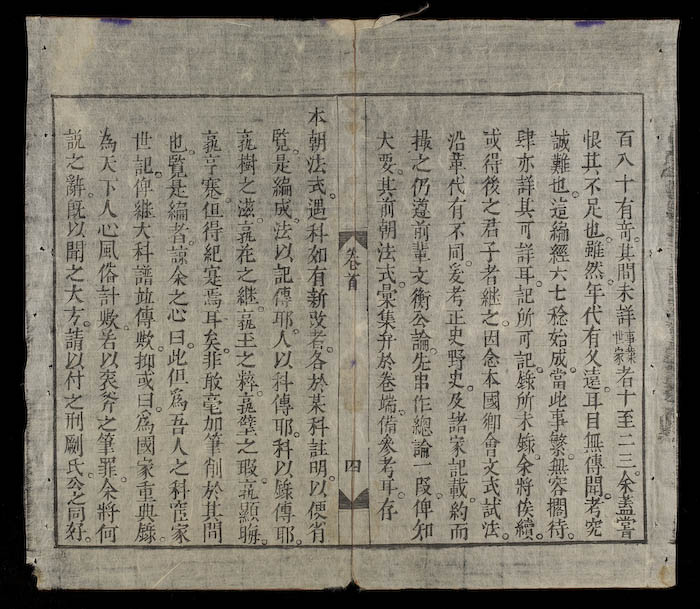 百八十有奇。其間未詳事業世家者十至二三。余蓋嘗
恨其不足也。雖然。年代有久遠。耳目無傳聞。考究
誠難也。這編經六七稔始成。當此事繁。無容擱待。
肆亦詳其可詳耳。記所可記。錄所未錄。余將俟續。
或得後之君子者継之。因念本國鄉會文式試法。
沿革代有不同。爰考正史野史。及諸家記載。約而
撮之。仍遵前輩文衡公論。先串作總論一段。俾知
大要。其前朝法式。彙集弁於卷端。備參考耳。存
本朝法式。遇科如有新改者。各於某科註明。以便省
覽。是編成。法以記傳耶。人以科傳耶。科以錄傳耶。
孰樹之滋。孰花之継。孰玉之粹。孰璧之瑕。孰顯聯。
孰亨蹇。但得紀寔焉耳矣。非敢毫加筆削於其間
也。覽是編者。諒余之心曰。此但為吾人之科宦家
世記。俾継大科譜並傳歟。抑或曰。為國家重典錄。
為天下人心風俗計歟。若以袞斧之筆罪余。將何
說之辭。旣以聞之大方。請以付之剞劂氏。公之同好。
卷首
四